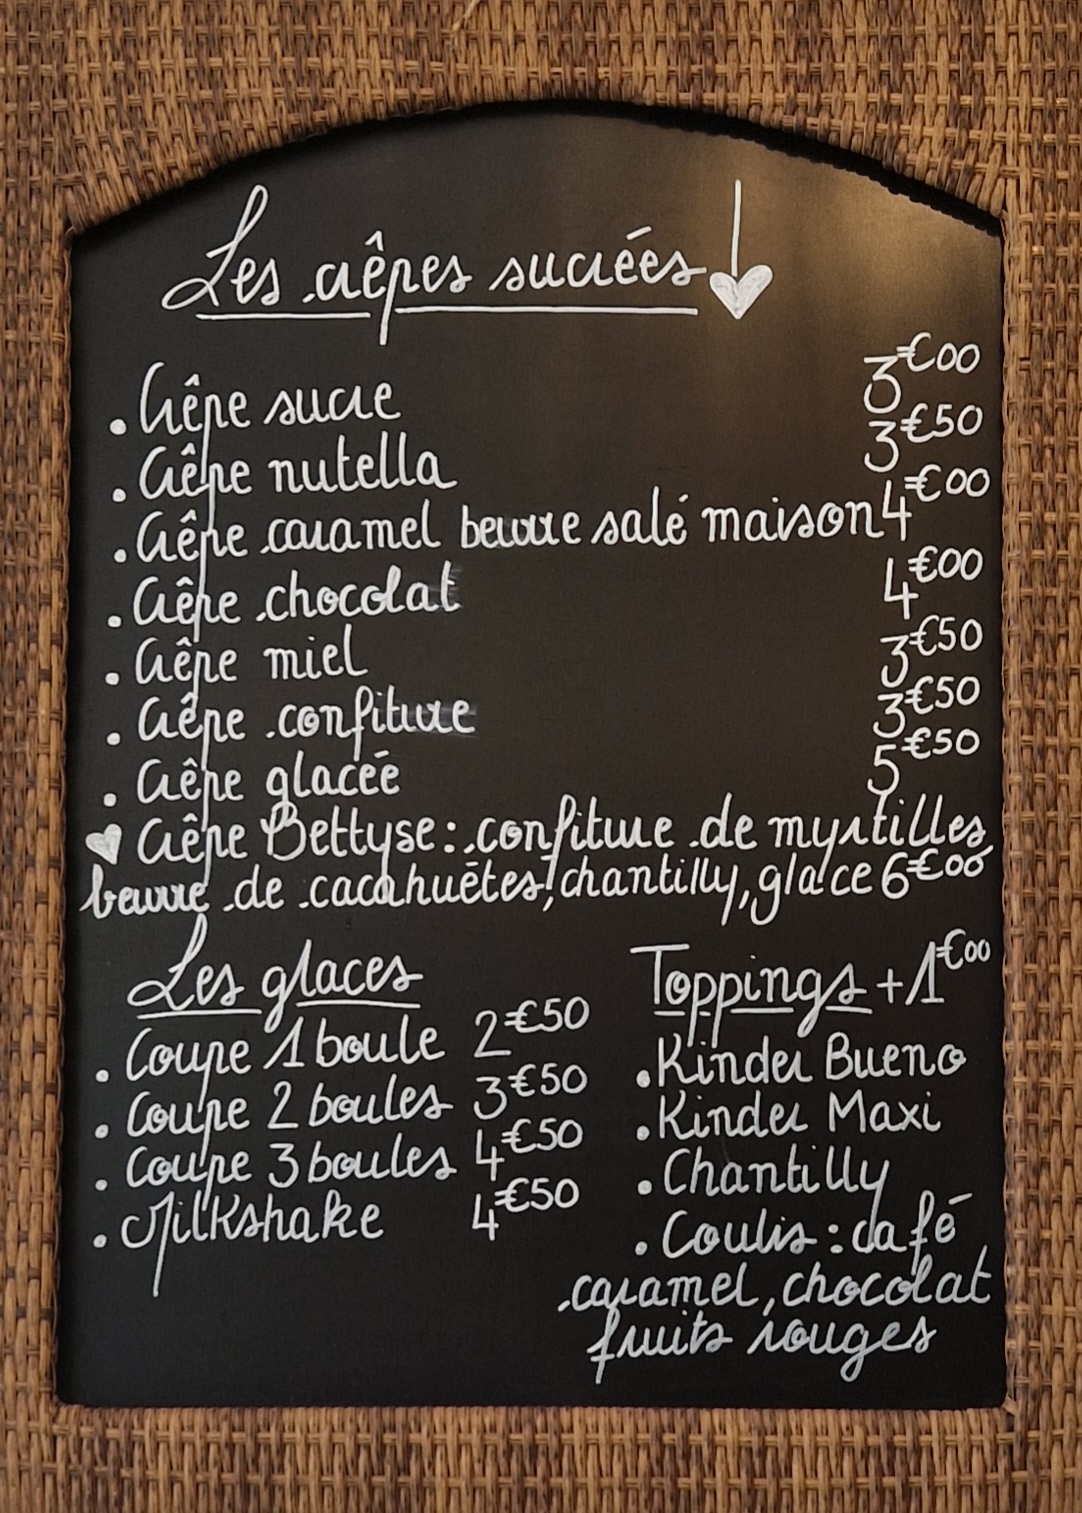 Les crêpes sucrées
. Crêpe sucre 3€00
. Crêpe nutella 3€50
. Crêpe caramel beurre salé maison 4€00
. Crêpe chocolat 4€00
. Crêpe miel 3€50
. Crêpe confiture 3€50
. Crêpe glacée 5€50
♥ Crêpe Bettyse : confiture de myrtilles,
beurre de cacahuètes, chantilly, glace 6€00
Les glaces
. Coupe 1 boule 2€50
. Coupe 2 boules 3€50
. Coupe 3 boules 4€50
. Milkshake 4€50
Toppings +1€00
. Kinder Bueno
. Kinder Maxi
. Chantilly
. Coulis : café
caramel, chocolat
fruits rouges